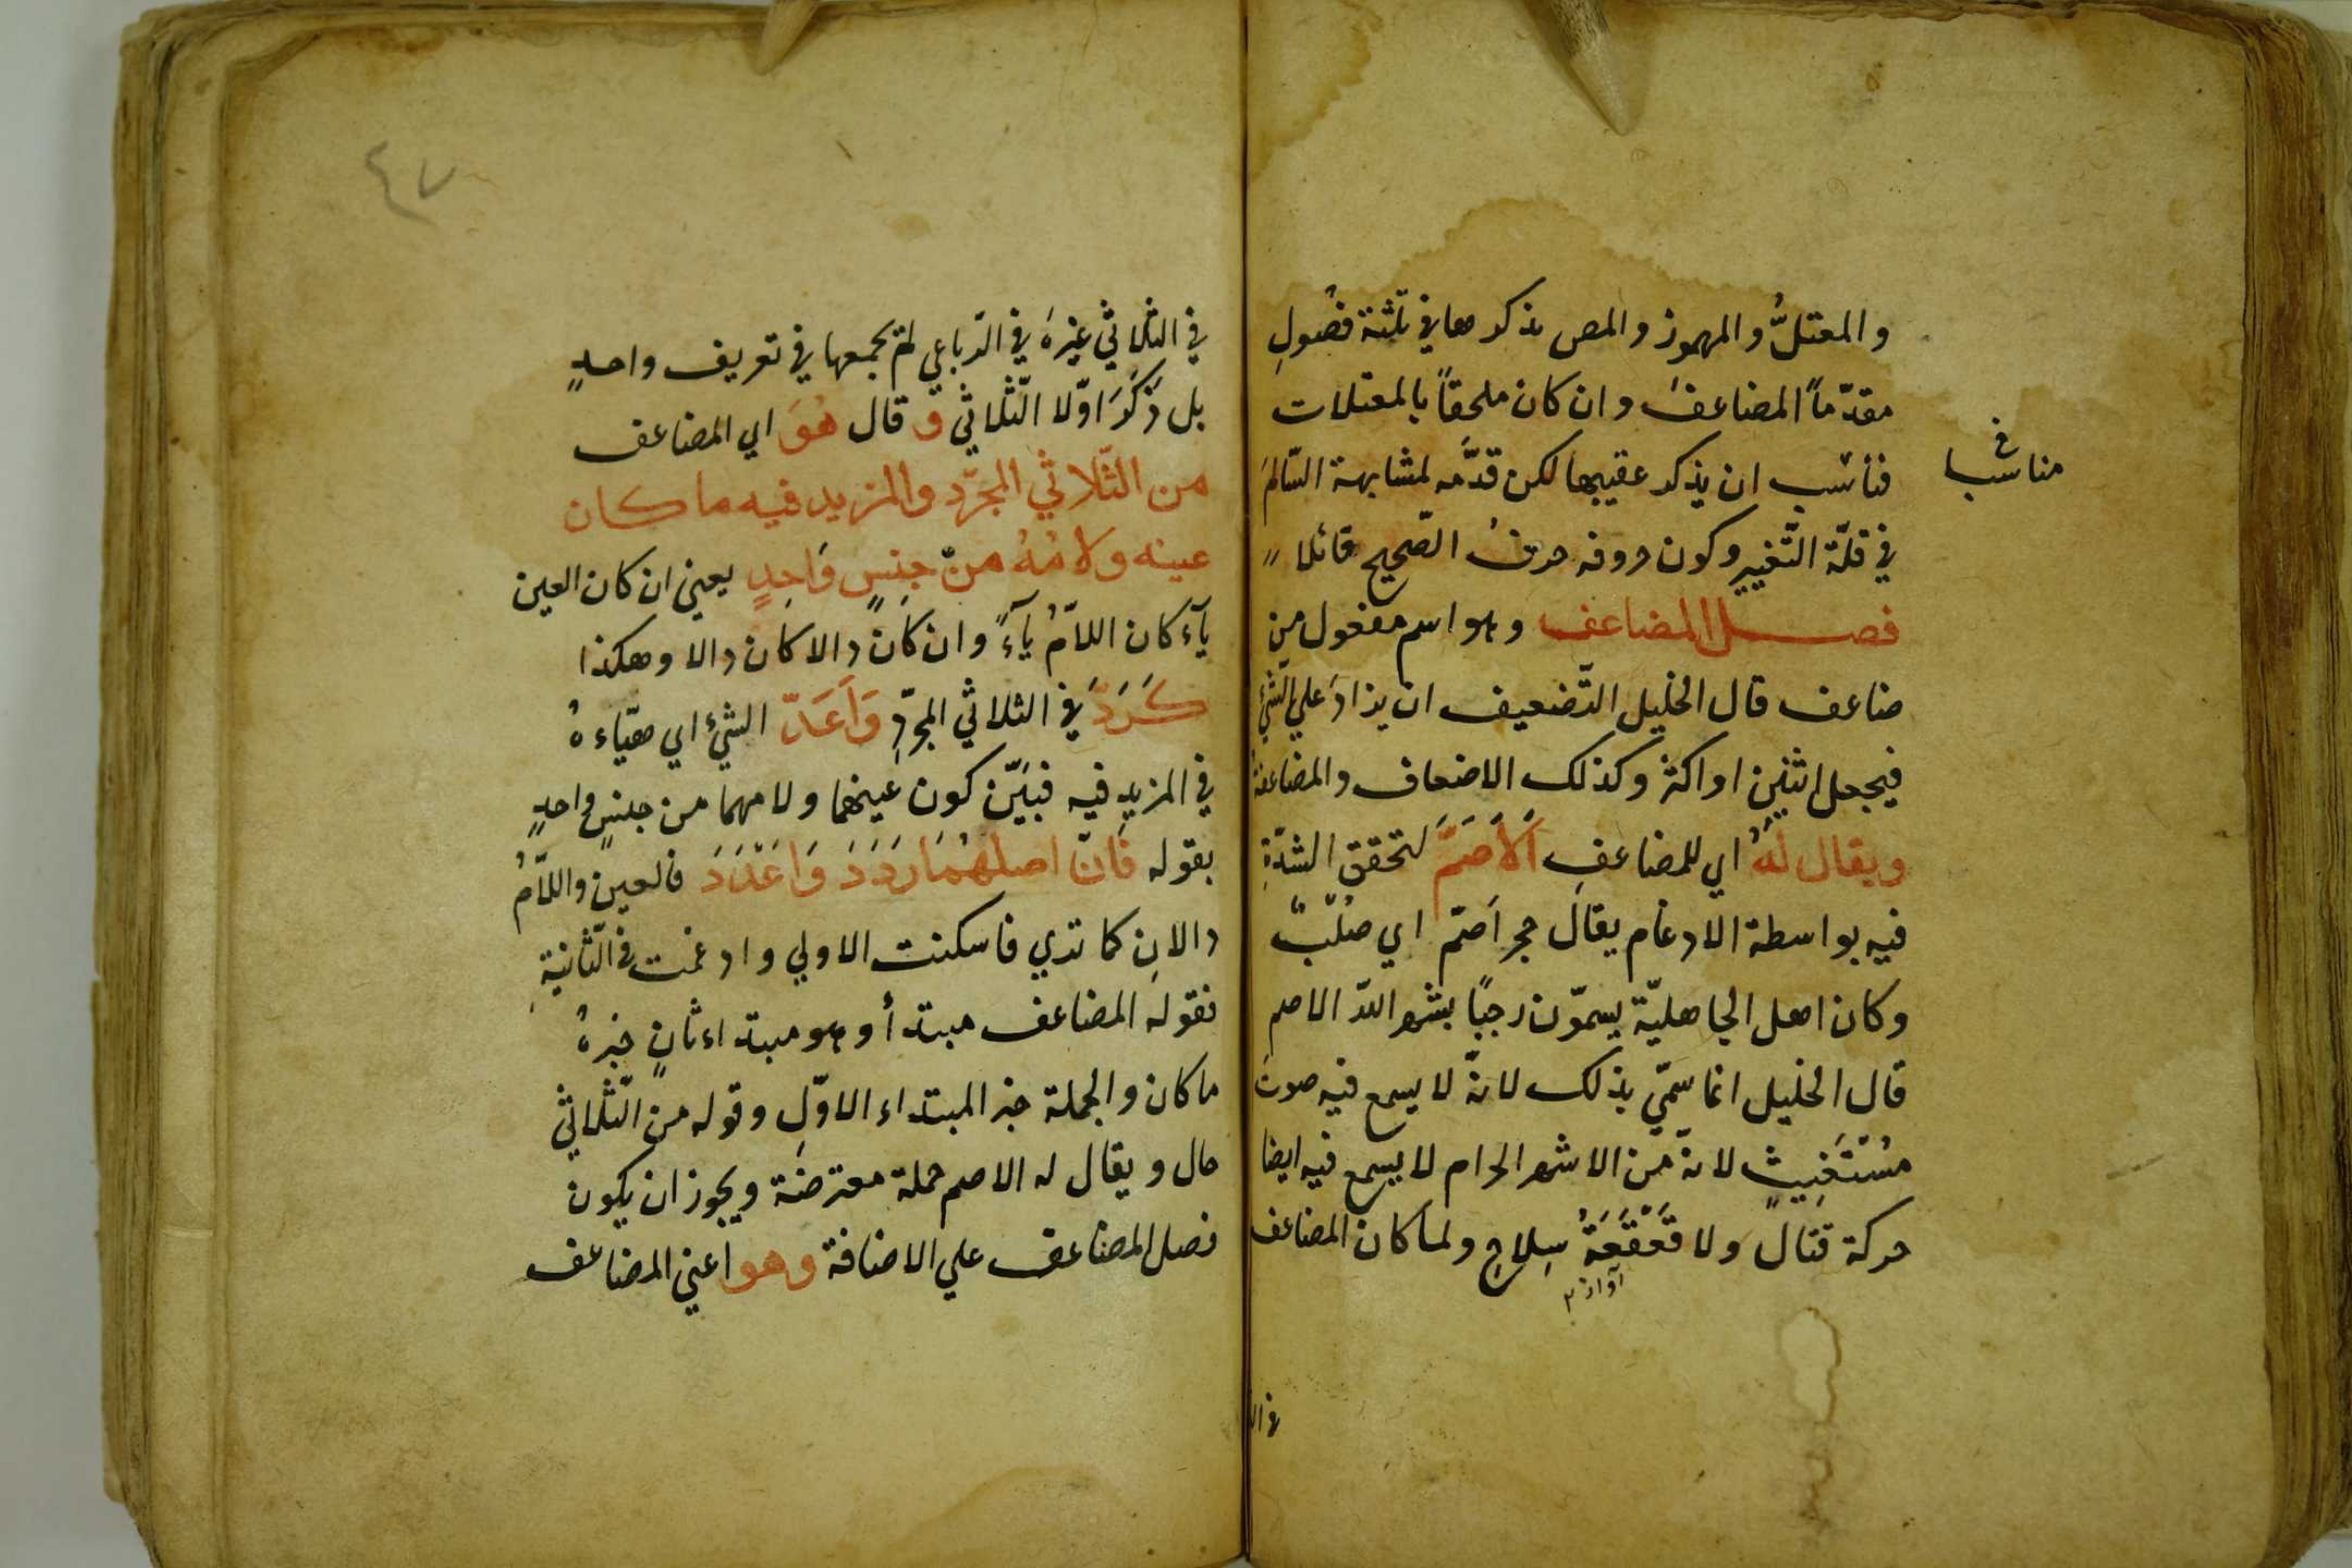 والمعتلُّ والمهموز والمص يذكرها في ثلثة فصُولِ
مقدّماً المضاعفَ وان كان ملحقاً بالمعتلات
فناسب ان يذكر عقيبها لكن قدّمه لمشابهة السّالمَ
مناسبا
في قلّة التّغيير وكون حروفه حرفُ الصّحيح قائلا
فصل المضاعف وهو اسم مفعول من
ضاعف قال الخليل التّضعيف ان يزادَ علي الشّئِ
فيجعل اثنين او اكثر وكذلك الاضعاف والمضاعفة
ويقال لهُ اي للمضاعفِ اَلاَصَمَّ لتحقق الشدّةِ
فيه بواسطة الادغام يقالُ حجر اَصَمّ اي صُلْبٌ
وكان اهل الجاهليّة يسمّون رجبًا بشهر اللّه الاصم
قال الخليل انما سمّي بذلك لانهّ لا يسمع فيه صوت
مُسْتَغِيثٍ لانهّ من الاشهر الحرام لا يسمع فيه ايضا
حركة قتال ولا قَعْقَعَةُ سِلاحٍ ولما كان المضاعف
آواز
في ال
٤٧
في الثّلاثي غيرهَ في الرّباعي لم يجمعها في تعريف واحدٍ
بل ذَكَرَ اوّلا الثّلاثي و قال هُوَ اي المضاعف
من الثّلاثي المجرّد والمزيد فيه ما كان
عينه ولامُهُ منْ جنسٍ وَاحِدٍ يعني ان كان العين
يآءً كان اللاّمُ يآءً وان كانَ دالا كان دالا وهكذا
كَرَدَّ في الثلاثي المجرّدِ وَاَعَدّ الشئَ اي هيّاءهُ
في المزيد فيه فبيّن كون عينهما ولامهما من جنسٍ واحدٍ
بقوله فَانّ اصلهُمَا رَدَدَ وَاَعْدَدَ فالعين واللاّمُ
دالانِ كما تري فاسكنت الاولي وادغمت في الثّانيةِ
فقوله المضاعف مبتدأ وهو مبتداء ثانٍ خبرهُ
ما كان والجملة خبر المبتداء الاوّلِ وقوله من الثّلاثي
حال ويقال له الاصم جملة معترضة ويجوز ان يكون
فصل المضاعف علي الاضافة وهو اعني المضاعف